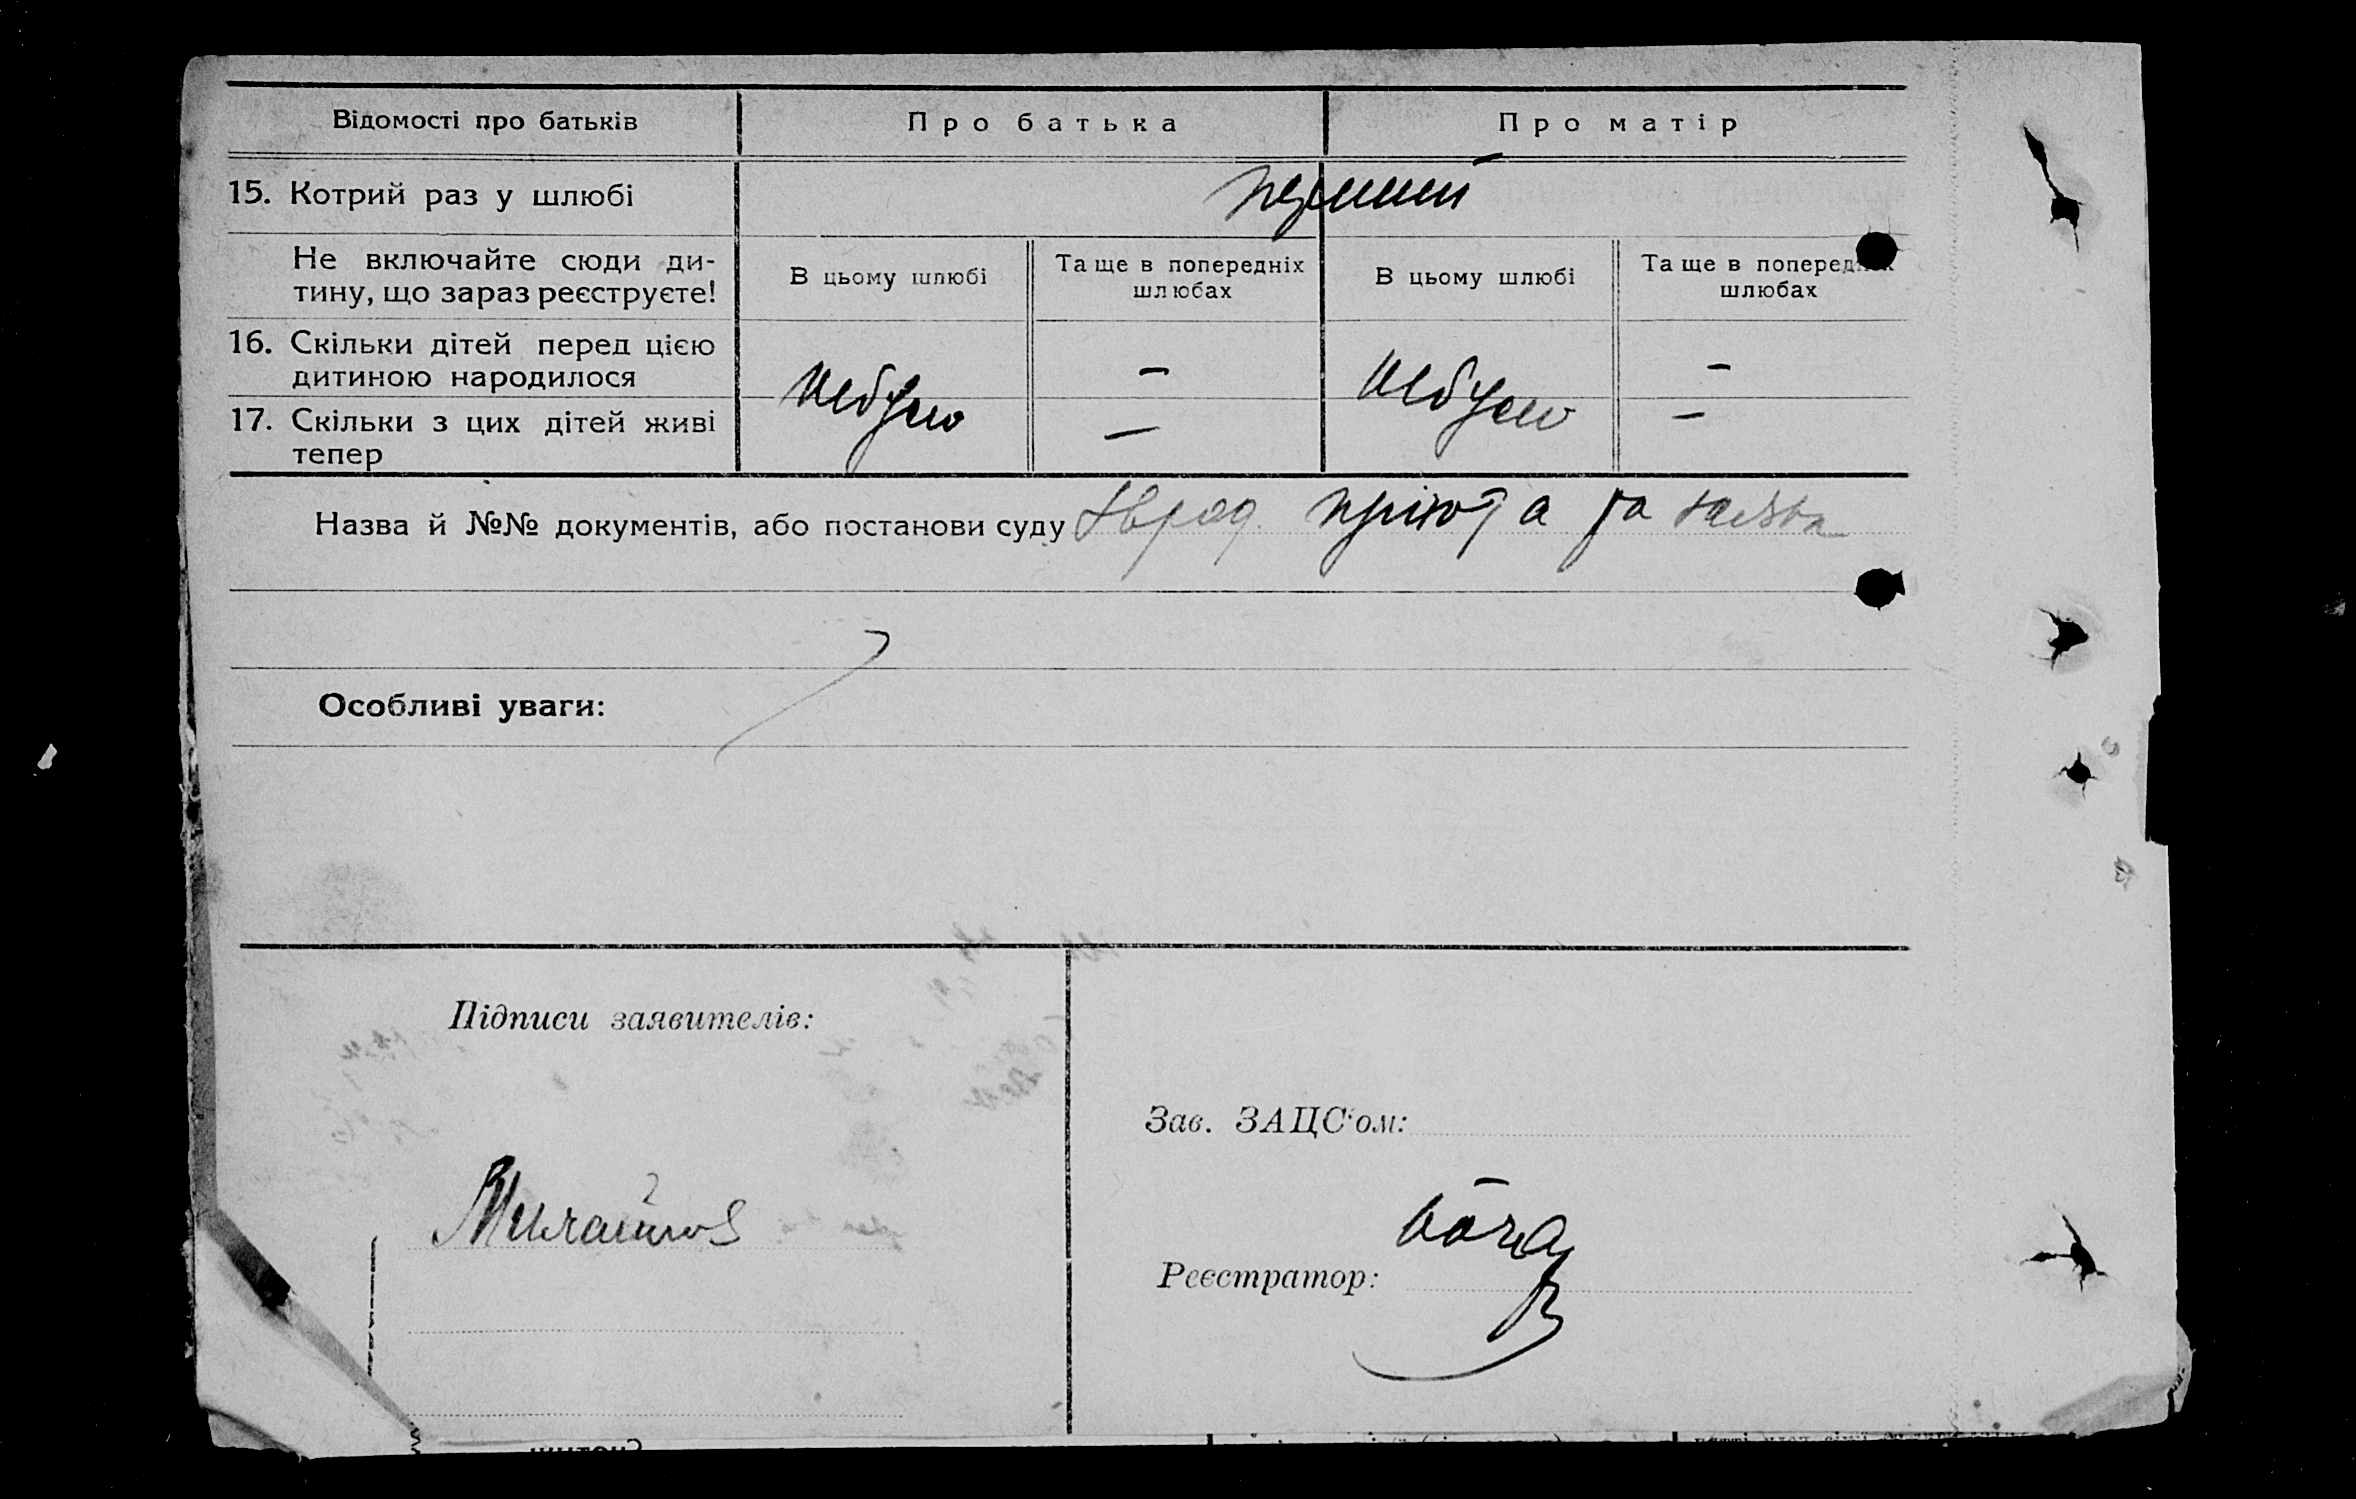 Відомості про батьків
Про батька
Про матір
15. Котрий раз у шлюбі
перший
Не включайте сюди ди-
тину, що зараз реєструєте!
В цьому шлюбі
Та ще в попередніх
шлюбах
В цьому шлюбі
Та ще в попередніх
шлюбах
16. Скільки дітей перед цією
дитиною народилося
небуло
–
небуло
–
17. Скільки з цих дітей живі
тепер
–
–
Назва й №№ документів, або постанови суду та заява
Особливі уваги:
Підписи заявителів:
Зав. ЗАЦС'ом:
Реєстратор: